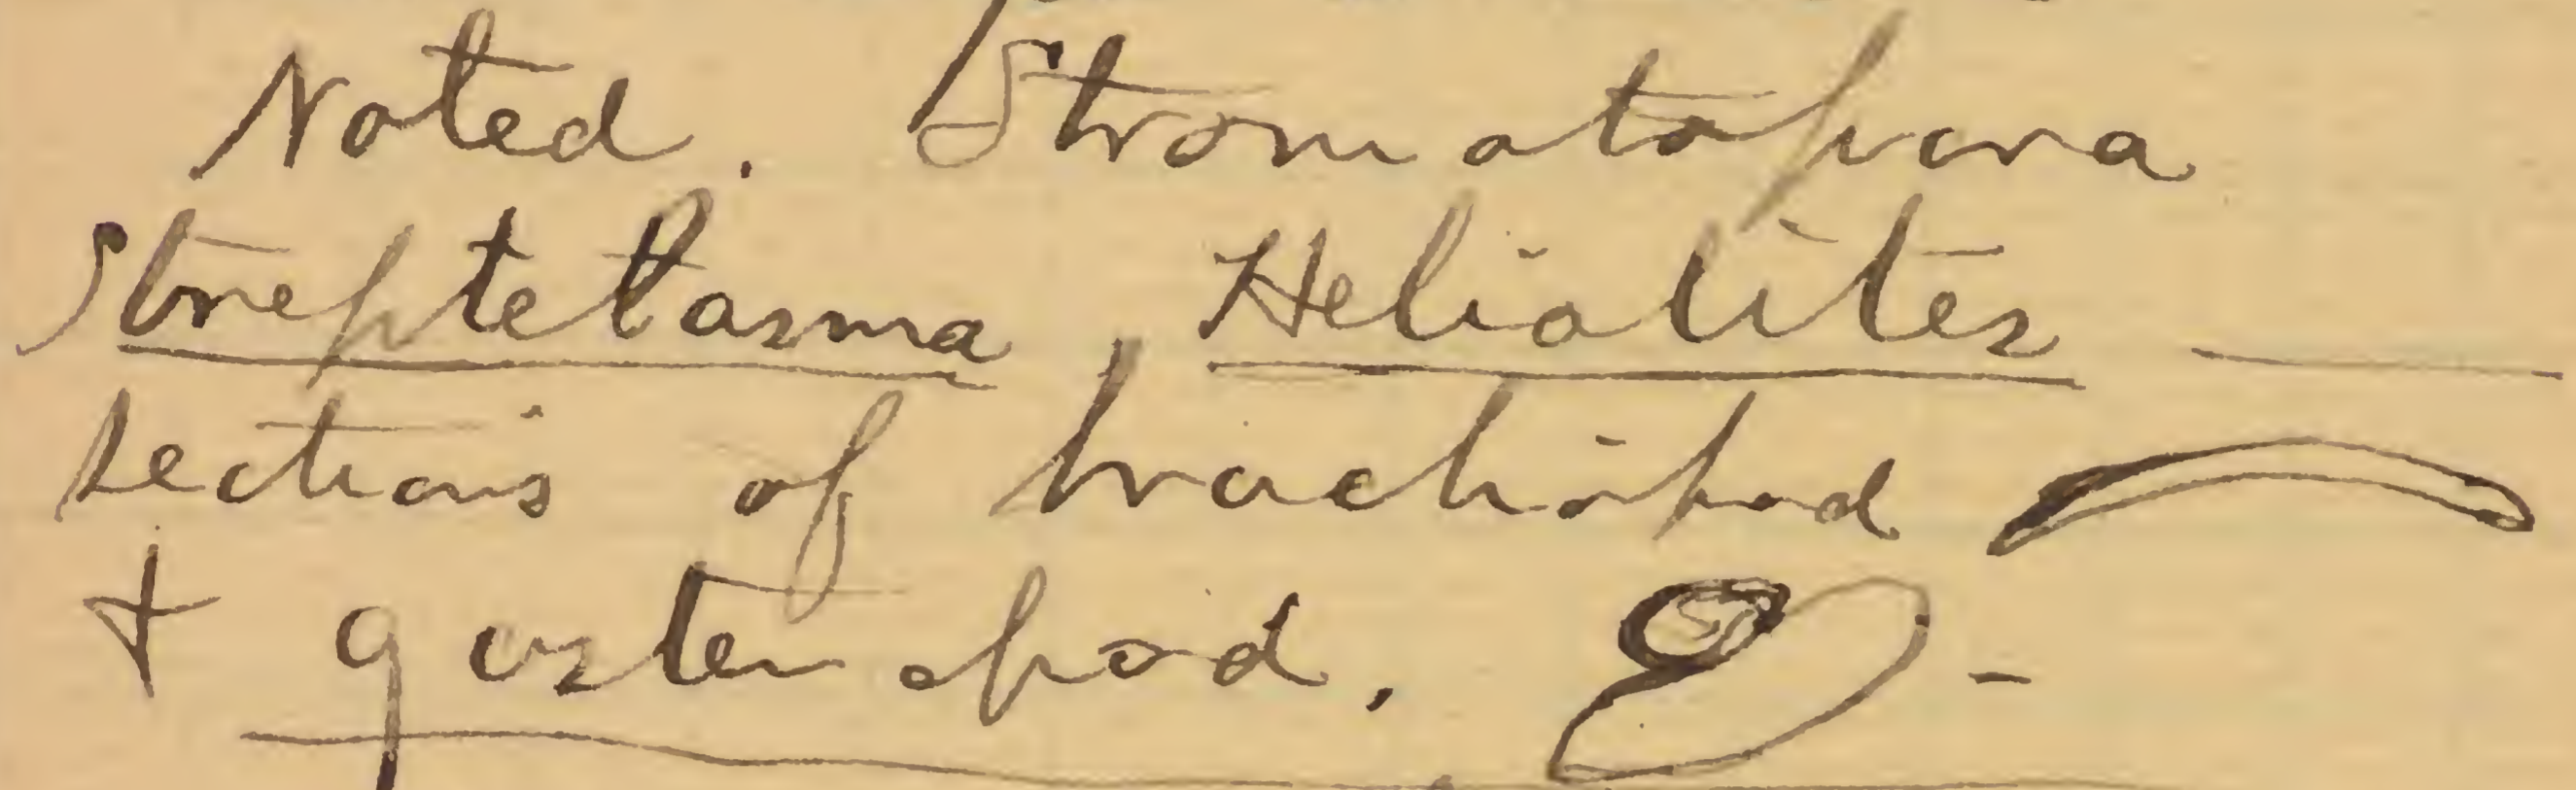 Noted. Stromatopora
Streptelasma, Heliolites —
sections of brachiopod
+ gasteropod. –